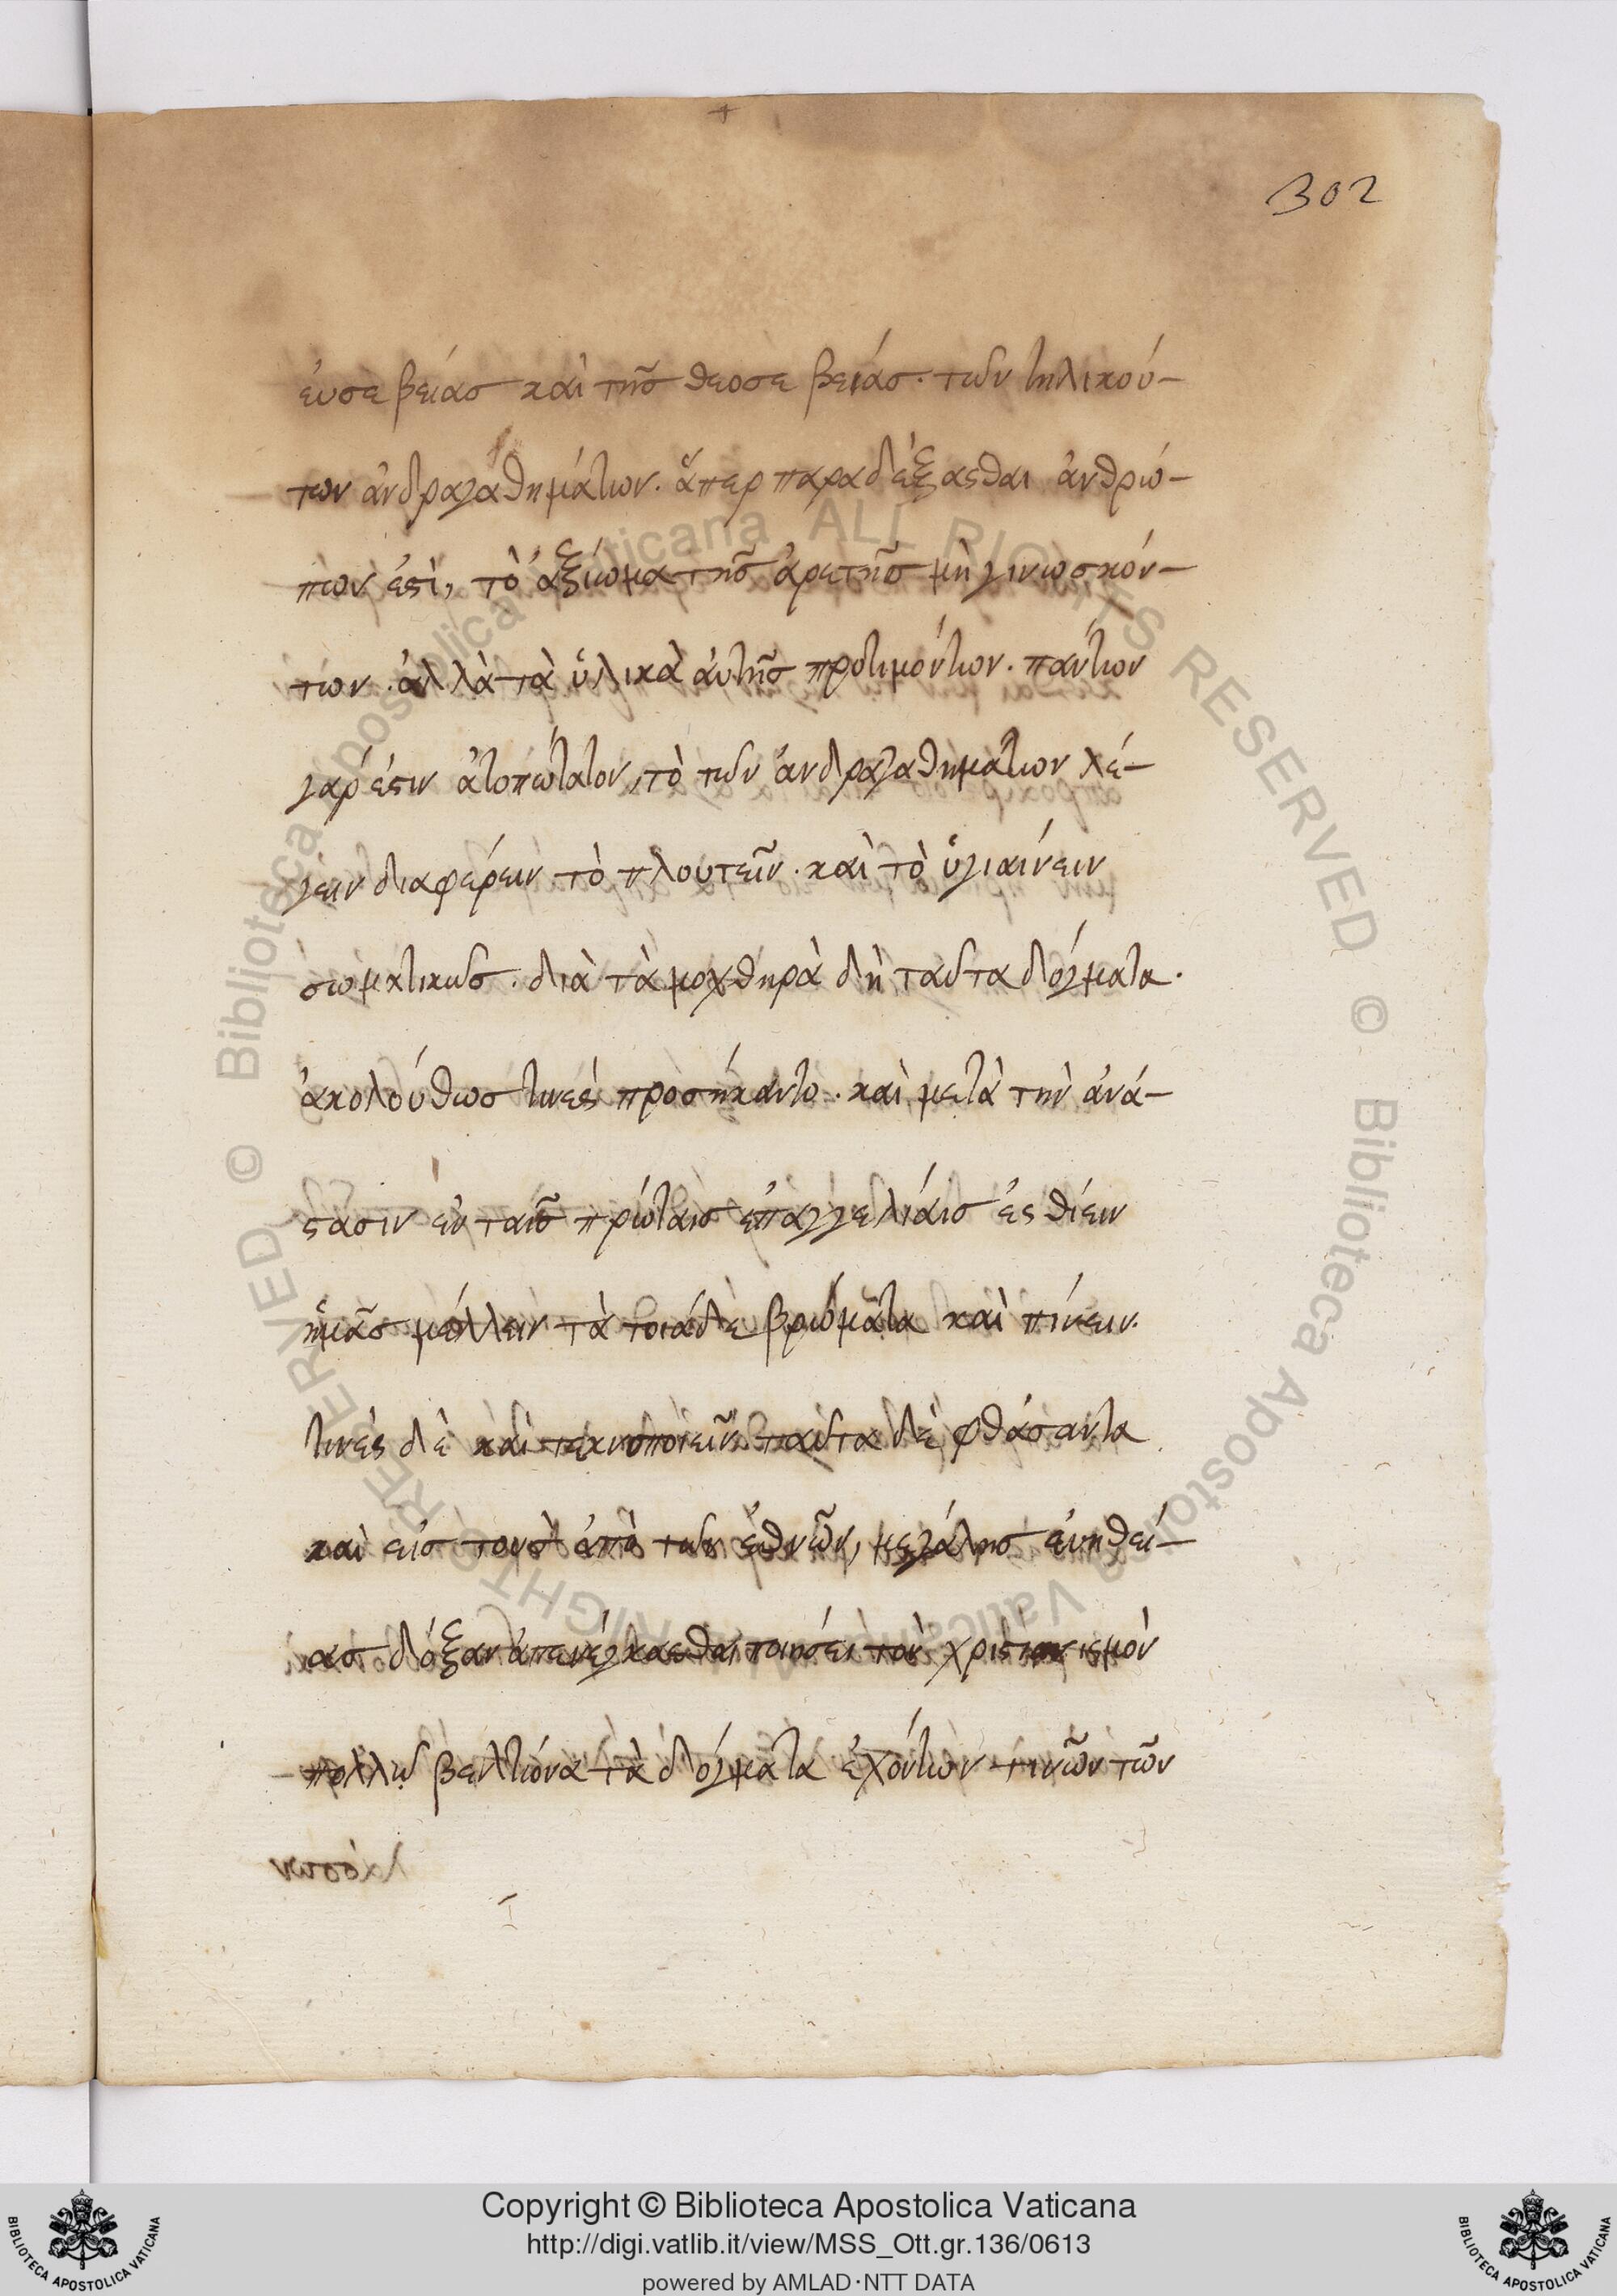 302
ἐυσεβείας καὶ τῆς θεοσεβείας. τῶν τηλικού-
των ἀνδραγαθημάτων. ἅπερ παραδέξασθαι ἀνθρώ-
πων ἐστὶ, τὸ ἀξίωμα τῆς ἀρετῆς μὴ γινωσκόν-
των. ἀλλὰ τὰ ὑλικὰ ἀυτῆς προτιμόντων. παντων
γάρ ἐστιν ἀτοπώτατον, τὸ τῶν ἀνδραγαθημάτων λέ-
γειν διαφέρειν τὸ πλουτεῖν. καὶ τὸ ὑγιαίνειν
σωματικῶς. διὰ τὰ μοχθηρὰ δὴ ταῦτα δόγματα.
ἀκολούθως τινὲς προσήκαντο. καὶ μετὰ τὴν ἀνά-
στασιν ἐν ταῖς πρώταις ἐπαγγελίαις ἐσθίειν
ἡμᾶς μέλλειν τὰ τοιάδε βρώματα καὶ πίνειν.
τινὲς δὲ καὶ τεκνοποιεῖν. ταῦτα δὲ φθάσαντα
καὶ εἰς τοὺς ἀπὸ τῶν ἐθνῶν, μεγάλης ἐυηθεί-
ας δόξαν ἀπενέγκασθαι ποιήσει τὸν χριστιανισμὸν
πολλῶ βελτίονα τὰ δόγματα ἐχόντων τινῶν τῶν
Copyright © Biblioteca Apostolica Vaticana
http://digi.vatlib.it/view/MSS_Ott.gr.136/0613
powered by AMLAD·NTT DATA
BIBLIOTECA APOSTOLICA VATICANA
BIBLIOTECA APOSTOLICA VATICANA
© Biblioteca Apostolica Vaticana ALL RIGHTS RESERVED © Biblioteca Apostolica Vaticana ALL RIGHTS RESERVED